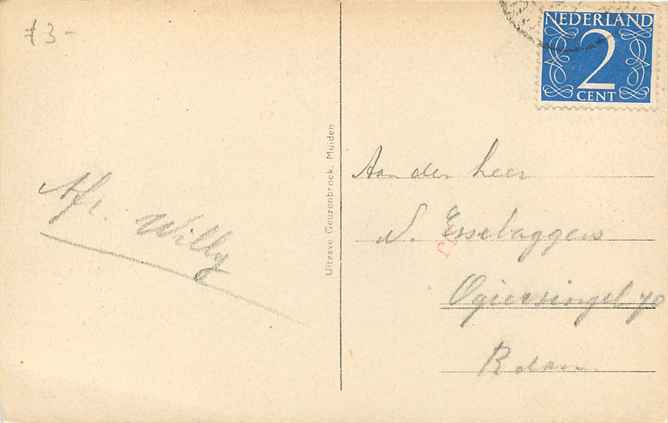 f3-
NEDERLAND
2
CENT
Uitgave Geuzenbroek, Muiden
Afz. Willy
Aan den heer
N. Esselaggers
Ogiersingel 70
R'dam.